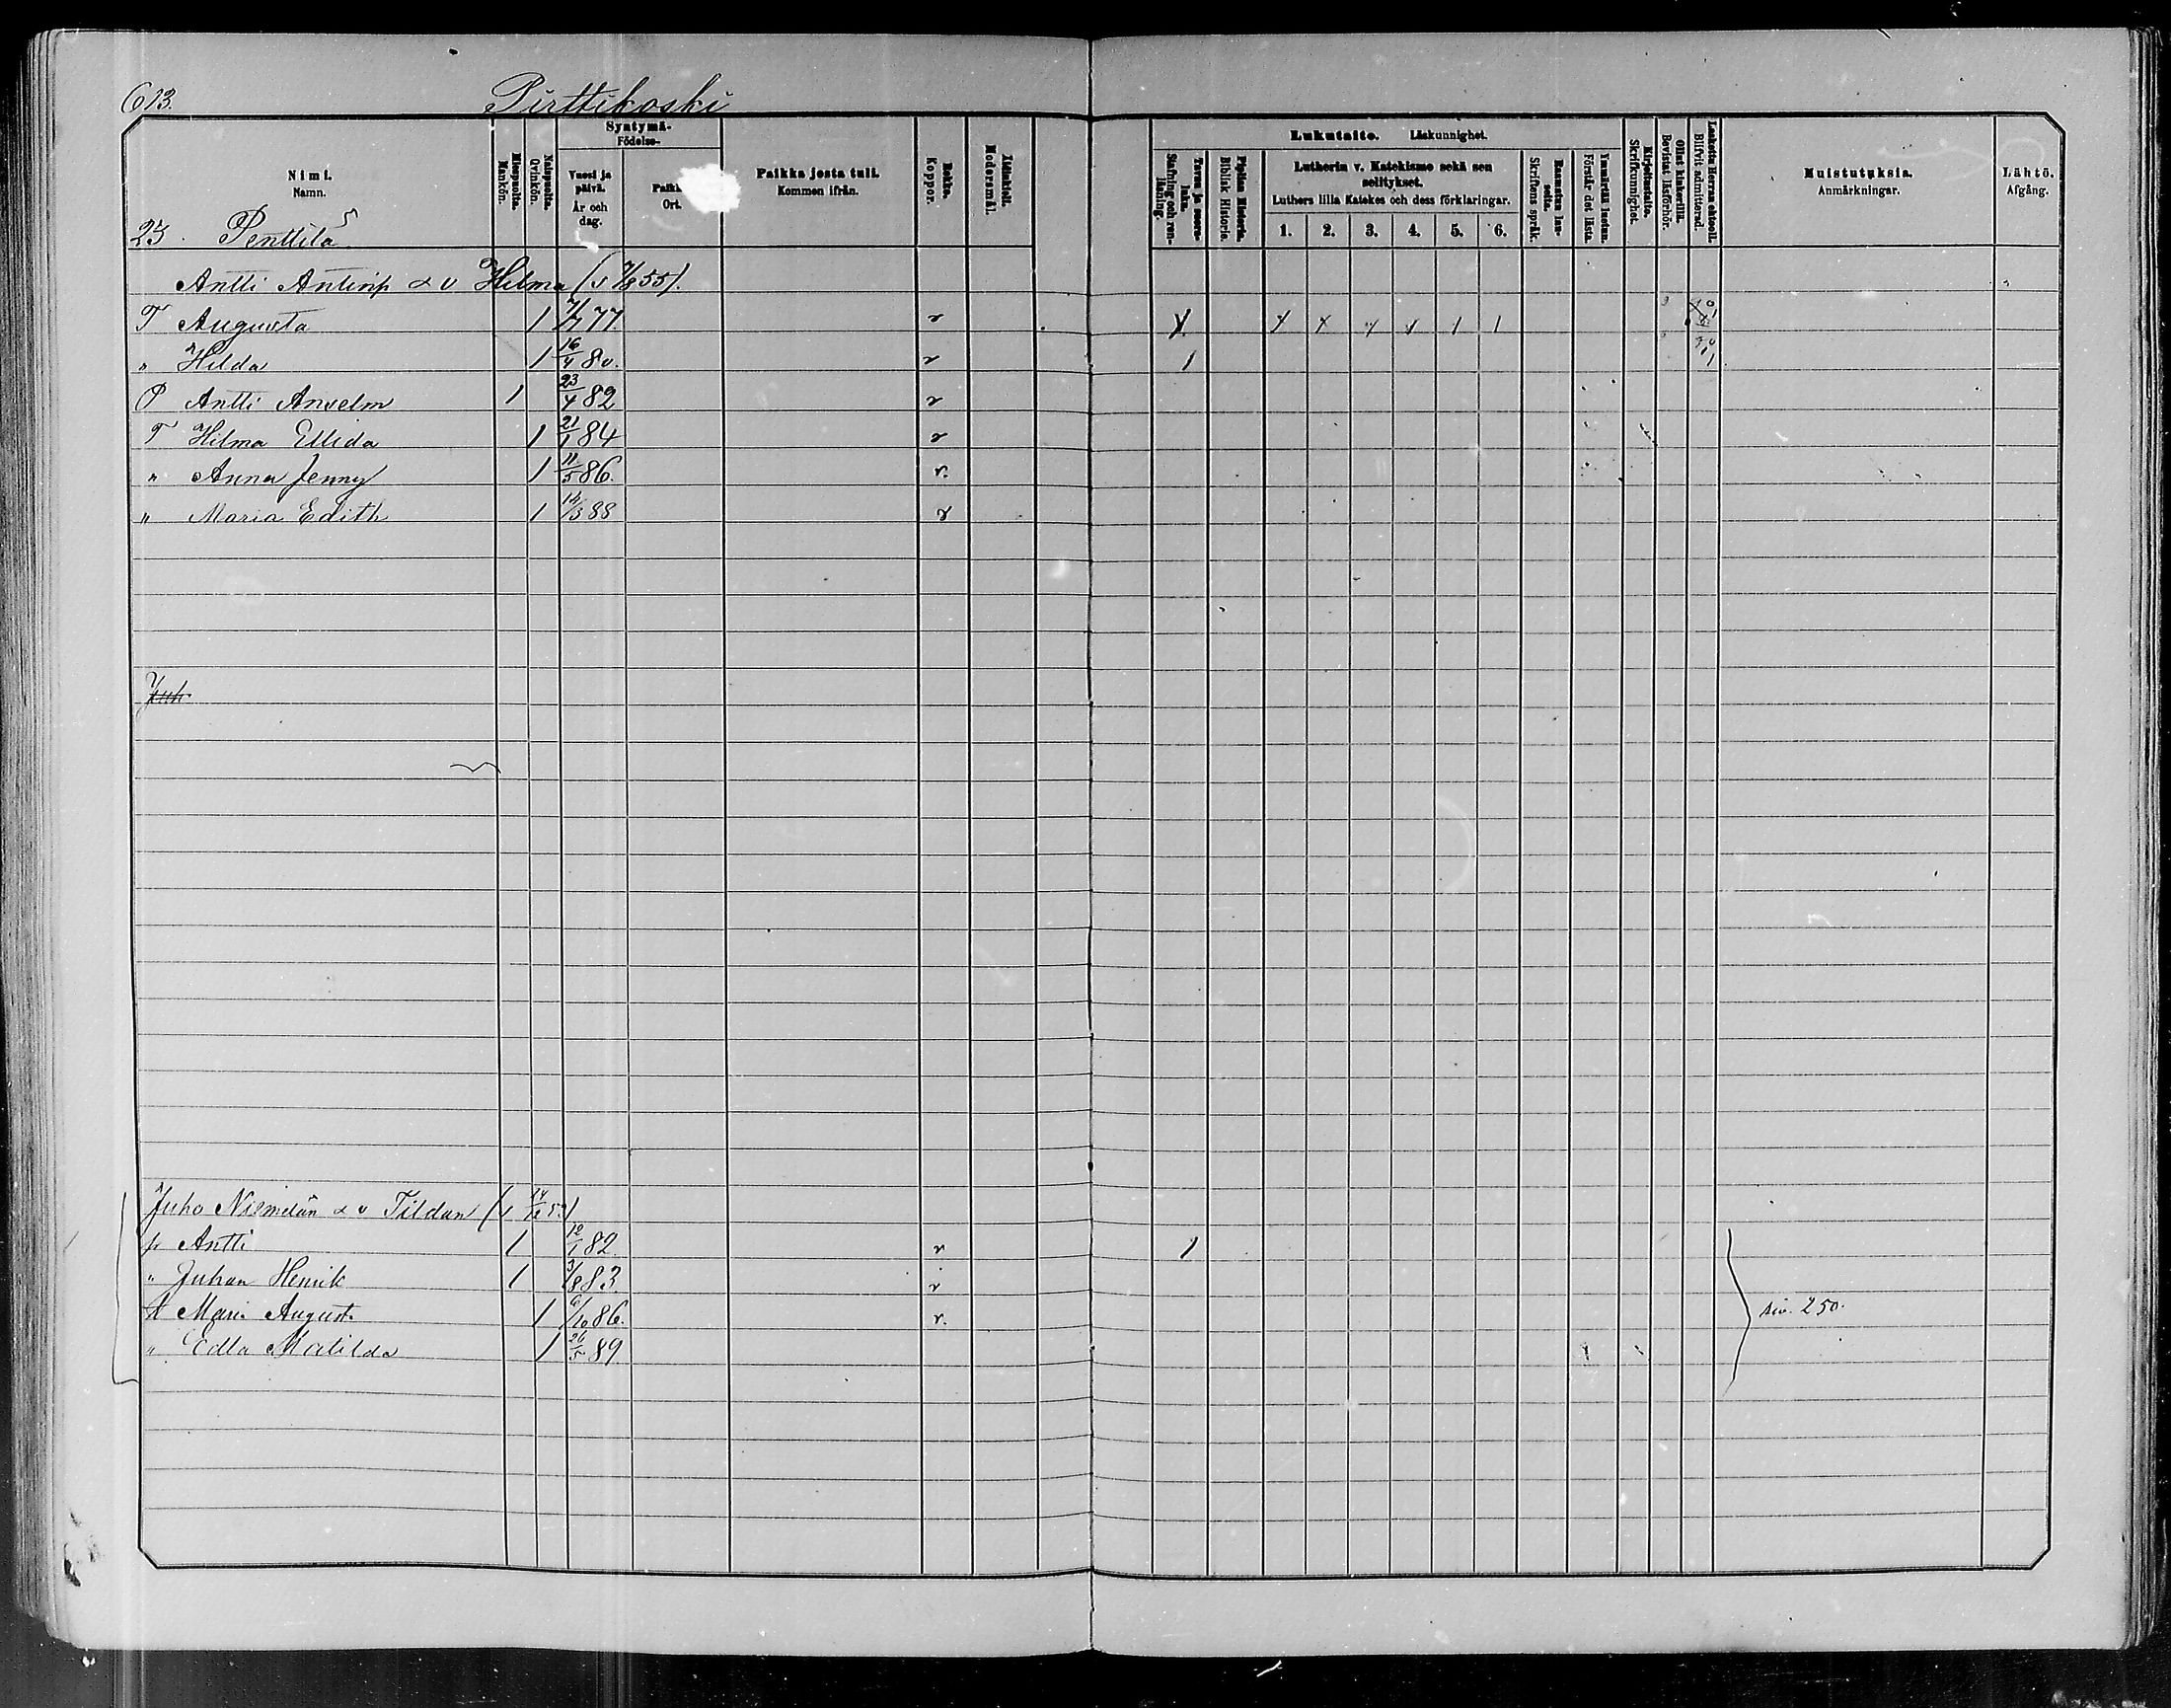 613.
Pirttikoski
Nimi.
Namn.
Miespuolia.
Mankön.
Naispuolia.
Qvinkön.
Syntymä-
Födelse-
Vuosi ja päivä.
År och dag.
Ort.
Paikka josta tuli.
Kommen ifrån.
Rokko.
Koppor.
Äidinkieli.
Modersmål.
Lukutaito. Läskunnighet.
Tavaa ja suora-luku.
Stafning och ren-läsning.
Piplian Historia.
Biblisk Historie.
Lutherin v. Katekismo sekä sen selitykset.
Luthers lilla Katekes och dess förklaringar.
1. 2. 3. 4. 5. 6.
Skriftens språk.
Ymmärtää luetun.
Förstår det lästa.
Kirjoitustaito.
Skrifkunnighet.
Ollut kinkerillä.
Bevistat läsförhör.
Laskettu Herran ehtooll.
Blifvit admitterad.
Muistutuksia.
Anmärkningar.
Lähtö.
Afgång.
23. Penttilä
Antti Antinp Hilma (s 7/8 55).
T Augusta 1 7/7 77. v
" Hilda 1 16/4 80. v 1
P Antti Anselm 1 23/4 82 v
T Hilma Ellida 1 21/1 84 v
" Anna Jenny 1 11/5 86. v.
" Maria Edith 1 14/3 88 v
Juh
Juho Niemelän Tildan
p Antti 1 12/1 82. v 1
" Juhan Henrik 1 3/8 83 v
t Maria August. 1 6/10 86. v.
" Edla Matilda 1 26/5 89.
siv. 250.